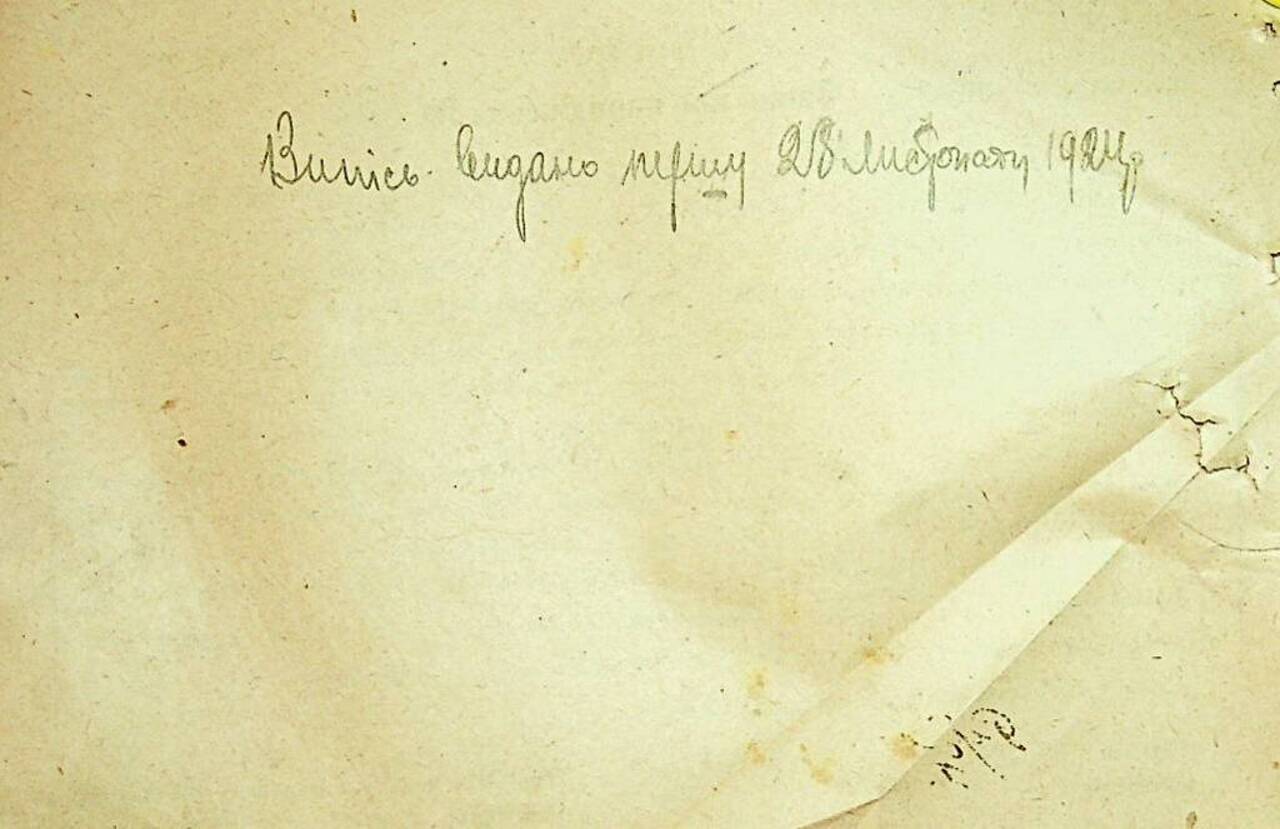 Випись видано першу 28 Листопаду 1924 р